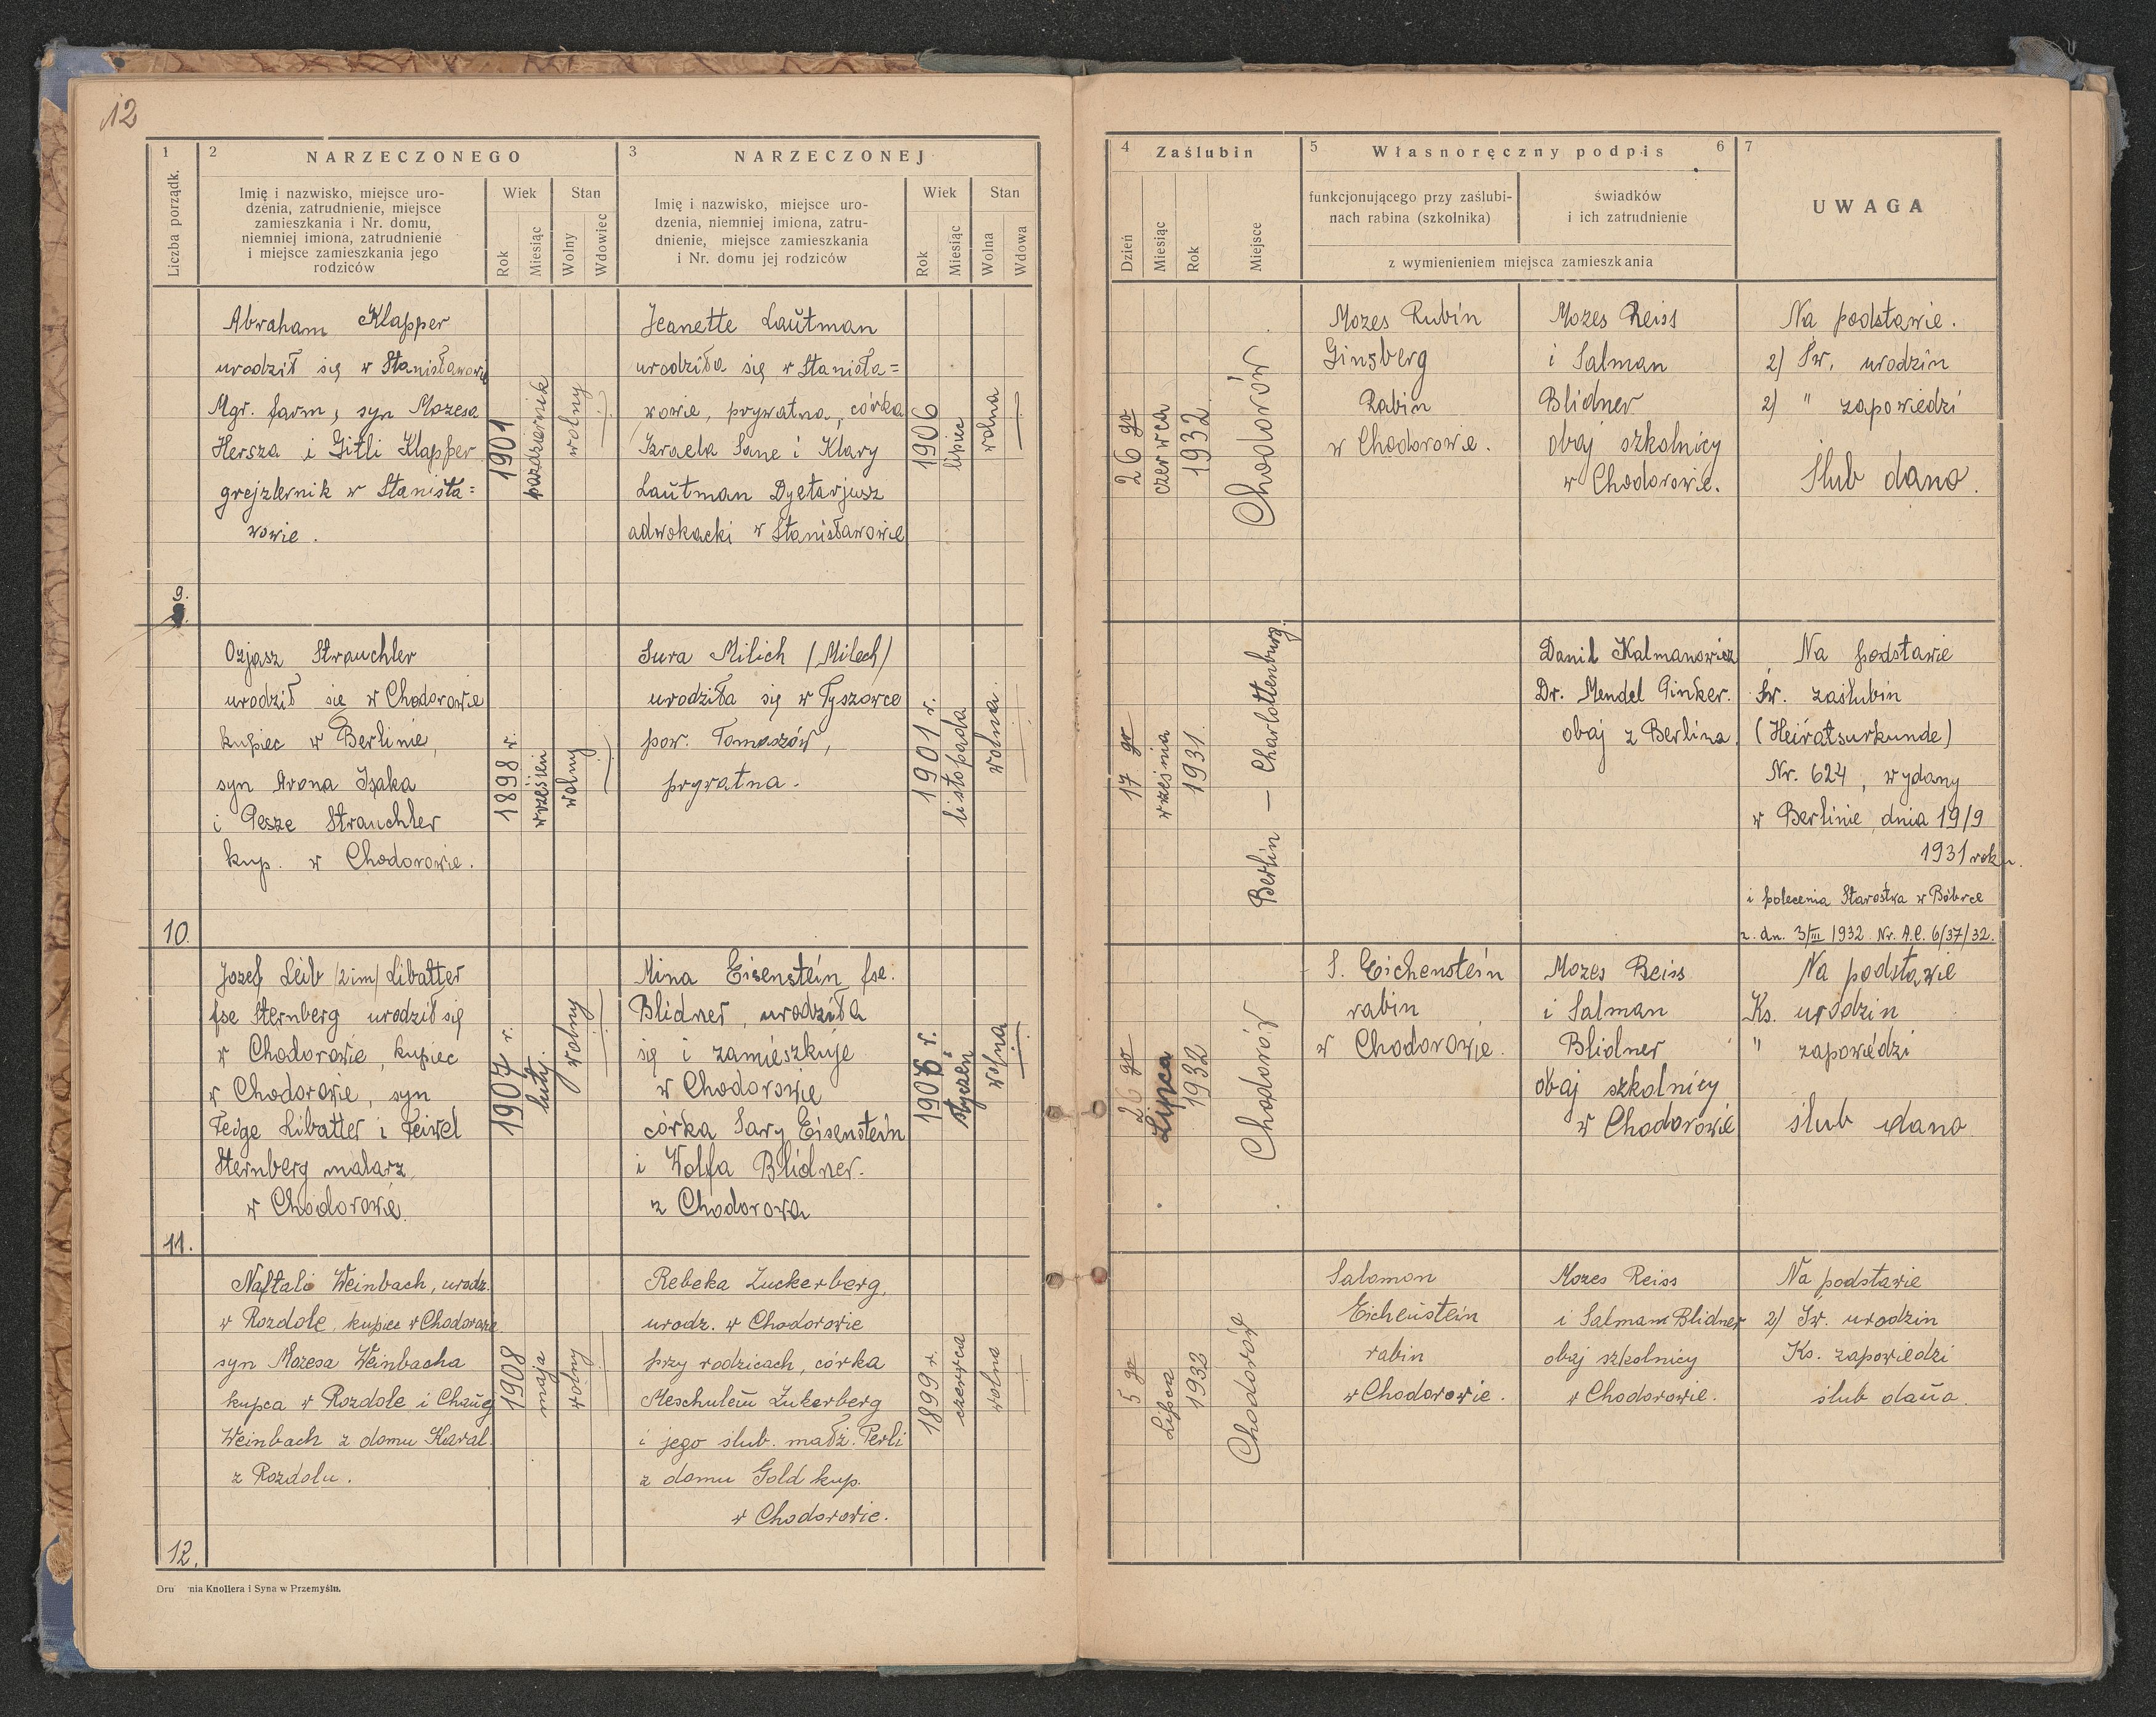 12
1
2
NARZECZONEGO
3
NARZECZONEJ
Liczba porządk.
Imię i nazwisko, miejsce uro-
dzenia, zatrudnienie, miejsce
zamieszkania i Nr. domu,
niemniej imiona, zatrudnienie
i miejsce zamieszkania jego
rodziców
Wiek
Stan
Rok
Miesiąc
Wolny
Wdowiec
Imię i nazwisko, miejsce uro-
dzenia, niemniej imiona, zatru-
dnienie, miejsce zamieszkania
i Nr. domu jej rodziców
Wiek
Stan
Rok
Miesiąc
Wolna
Wdowa
4
Zaślubin
5
Własnoręczny podpis
6
7
Dzień
Miesiąc
Rok
Miejsce
funkcjonującego przy zaślubi-
nach rabina (szkolnika)
świadków
i ich zatrudnienie
z wymienieniem miejsca zamieszkania
UWAGA
9.
Abraham Klapper
urodził się w Stanisławowie
Mgr. farm, syn Mozesa
Hersza i Gitli Klapper
grejzlernik w Stanisła=
wowie.
1901
październik
wolny
Jeanette Lautman
urodziła się w Stanisła=
wowie, prywatna, córka
Izraela Sane i Klary
Lautman Dyetarjusz
adwokacki w Stanisławowie
1906
lipiec
wolna
26 go
czerwca
1932
Chodorów
Mozes Rubin
Ginsberg
Rabin
w Chodorowie.
Mozes Reiss
i Salman
Blidner
obaj szkolnicy
w Chodorowie.
Na podstawie.
2) Św. urodzin
2) " zapowiedzi
Ślub dano.
10.
Ozjasz Strauchler
urodził się w Chodorowie
kupiec w Berlinie,
syn Arona Izaka
i Pesze Strauchler
kup. w Chodorowie.
1898 r.
wrzesień
wolny
Sura Milich (Milech)
urodziła się w Tyszowce
pow. Tomaszów,
prywatna.
1901 r.
listopada
wolna.
17 go
września
1931.
Berlin — Charlottenburg.
Danil Kalmanowicz
Dr. Mendel Pinker.
obaj z Berlina.
Na podstawie
Św. zaślubin
(Heiratsurkunde)
Nr. 624, wydany
w Berlinie dnia 19/9
1931 roku.
i polecenia Starostwa w Bóbrce
z. dn. 3/III 1932 Nr. A.C. 6/37/32.
11.
Jozef Leib /2im/ Libatter
fse Sternberg urodził się
w Chodorowie, kupiec
w Chodorowie, syn
Feige Libatter i Feiwel
Sternberg malarz
w Chodorowie
1907 r.
luty.
wolny
Mina Eisenstein fse.
Blidner, urodziła
się i zamieszkuje
w Chodorowie
córka Sary Eisenstein
i Wolfa Blidner.
z Chodorowa
styczeń
wolna
go
Lipca
1932
Chodorów
S. Eichenstein
rabin
w Chodorowie.
Mozes Reiss
i Salman
Blidner
obaj szkolnicy
w Chodorowie
Na podstawie
Ks. urodzin
" zapowiedzi
ślub dano
12.
Naftali Weinbach, urodz.
w Rozdole, kupiec w Chodorowie
syn Mozesa Weinbacha
kupca w Rozdole i
Weinbach z domu
z Rozdolu.
1908
maja
wolny
Rebeka Zuckerberg,
urodz. w Chodorowie
przy rodzicach, córka
Meschulem Zukerberg
i jego ślub. małż. Perli
z domu Gold kup.
w Chodorowie.
1899 r.
czerwca
wolna
5 go
Lipca
1932
Chodorów
Salomon
Eichenstein
rabin
w Chodorowie.
Mozes Reiss
i Salman Blidner
obaj szkolnicy
w Chodorowie.
Na podstawie
2) Św. urodzin
Ks. zapowiedzi
ślub dano.
Dru nia Knollera i Syna w Przemyślu.